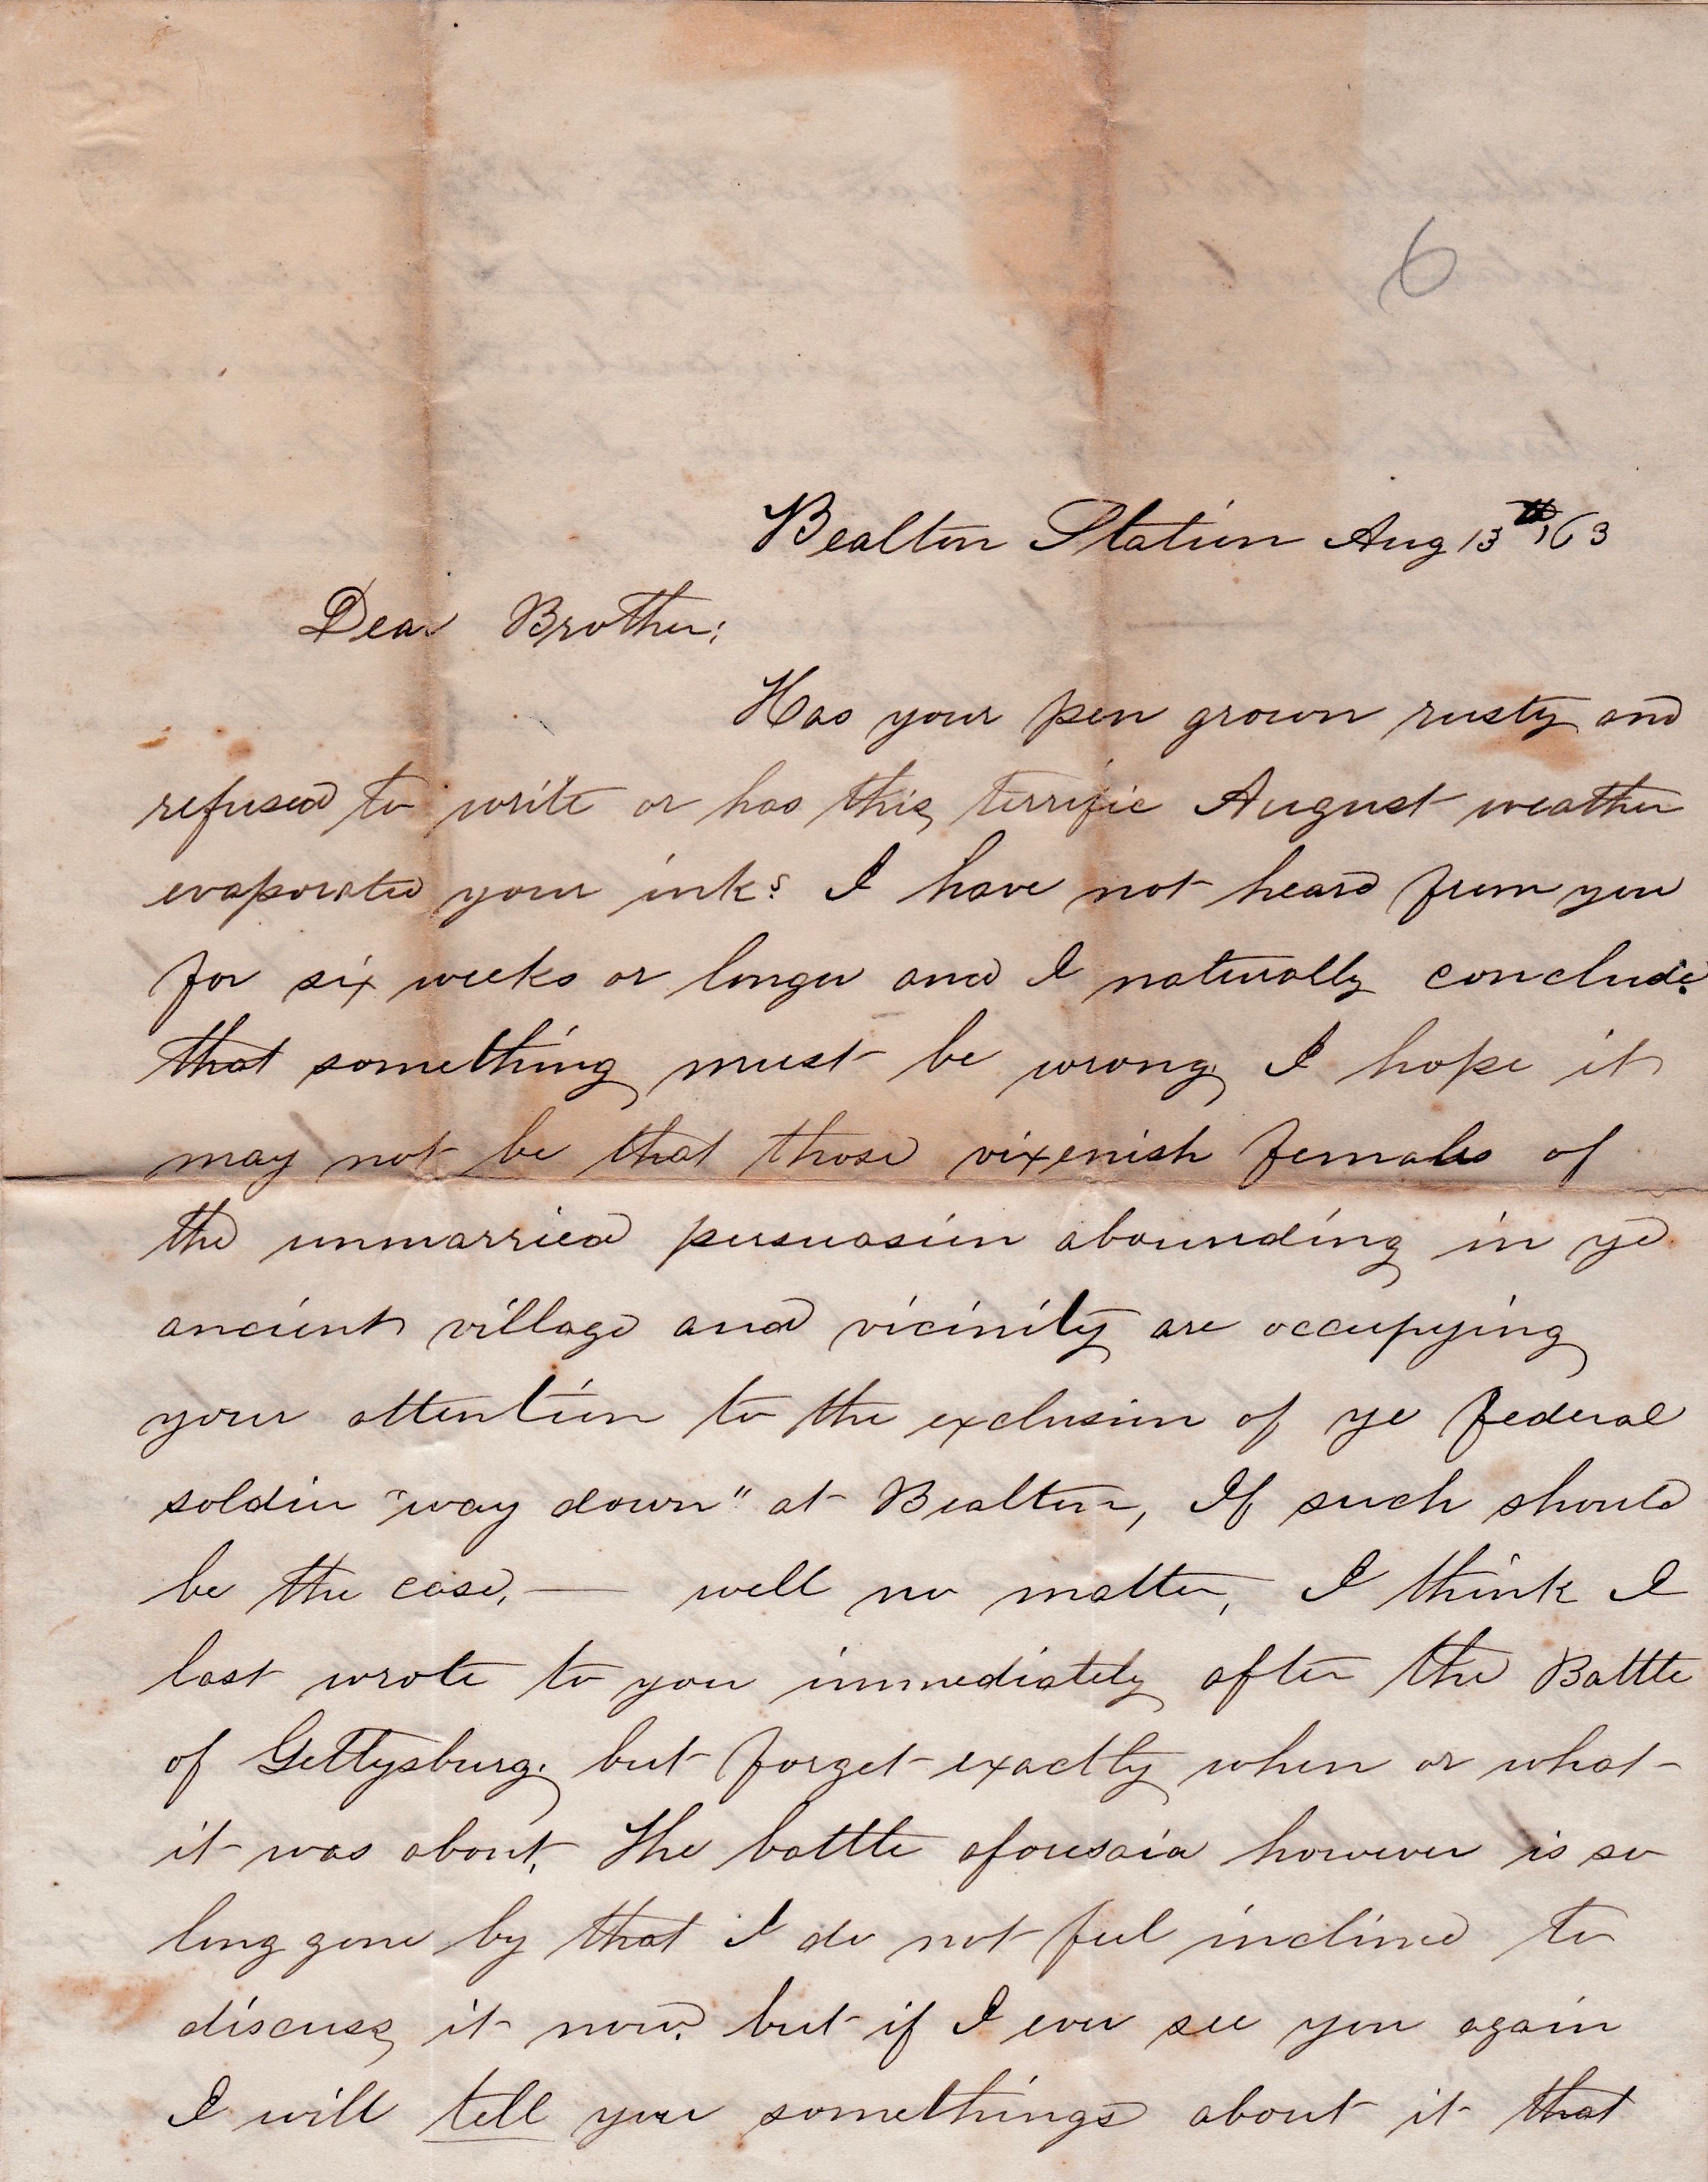 6
Bealton Station Aug 13th, 63
Dear Brother;
Has your pen grown rusty and
refused to write or has this terrific August weather
evaporated your ink? I have not heard from you
for six weeks or longer and I naturally conclude
that something must be wrong, I hope it
may not be that those vixenish females of
the unmarried persuasion abounding in ye
ancient village and vicinity are occupying
your attention to the exclusion of ye federal
soldier "way down" at Bealton, If such should
be the case, — well no matter, I think I
last wrote to you immediately after the Battle
of Gettysburg, but forget exactly when or what
it was about, The battle aforesaid however is so
long gone by that I do not feel inclined to
discuss it now, but if I ever see you again
I will tell you somethings about it that